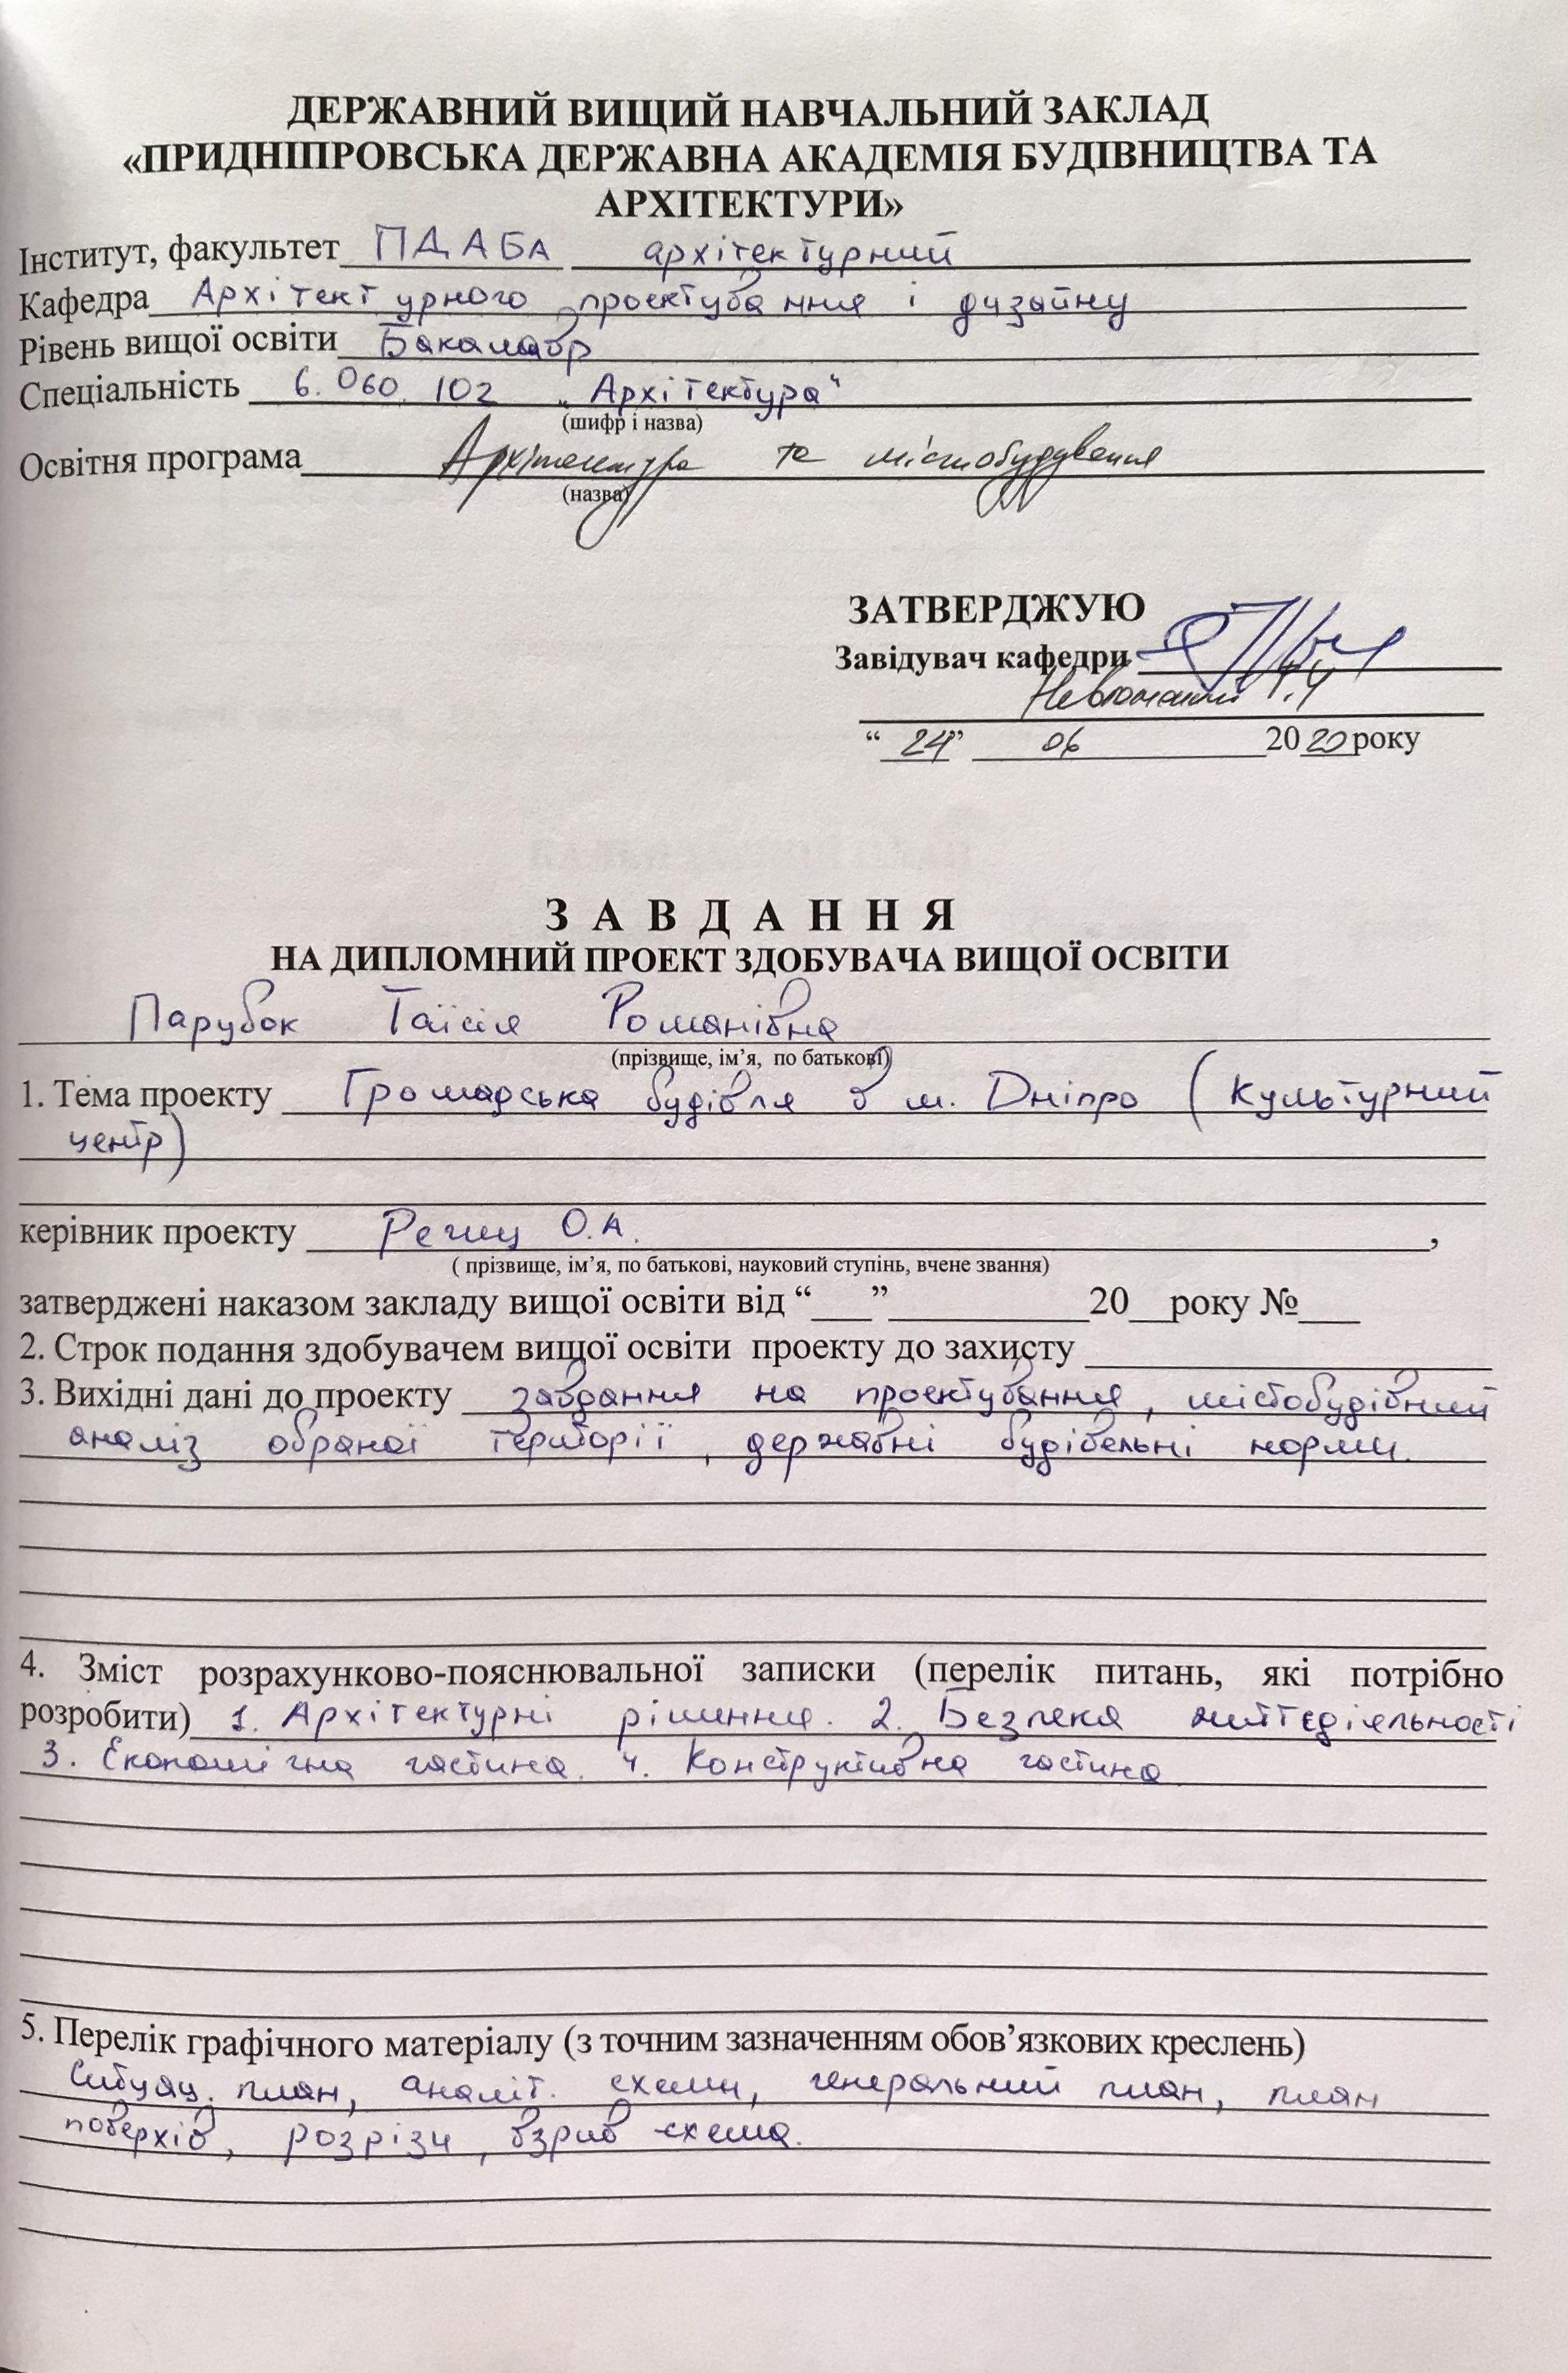 ДЕРЖАВНИЙ ВИЩИЙ НАВЧАЛЬНИЙ ЗАКЛАД
«ПРИДНІПРОВСЬКА ДЕРЖАВНА АКАДЕМІЯ БУДІВНИЦТВА ТА
АРХІТЕКТУРИ»
Інститут, факультет ПДАБА архітектурний
Кафедра Архітектурного проектування і дизайну
Рівень вищої освіти Бакалавр
Спеціальність 6.060.102 „Архітектура“
(шифр і назва)
Освітня програма Архітектура та містобудування
(назва)
ЗАТВЕРДЖУЮ
Завідувач кафедри
“ 24” 06 2020 року
З А В Д А Н Н Я
НА ДИПЛОМНИЙ ПРОЕКТ ЗДОБУВАЧА ВИЩОЇ ОСВІТИ
Парубок Таїсія Романівна
(прізвище, ім’я, по батькові)
1. Тема проекту Громадська будівля в м. Дніпро (Культурний
центр)
керівник проекту О.А.
( прізвище, ім’я, по батькові, науковий ступінь, вчене звання)
затверджені наказом закладу вищої освіти від “___” __________20__року №___
2. Строк подання здобувачем вищої освіти проекту до захисту
3. Вихідні дані до проекту завдання на проектування, містобудівний
аналіз обраної території, державні будівельні норми.
4. Зміст розрахунково-пояснювальної записки (перелік питань, які потрібно
розробити) 1. Архітектурні рішення. 2. Безпека життєдіяльності
3. Економічна частина. 4. Конструктивна частина
5. Перелік графічного матеріалу (з точним зазначенням обов’язкових креслень)
план, аналіт. схеми, генеральний план, план
поверхів, розрізи, взрив схема.